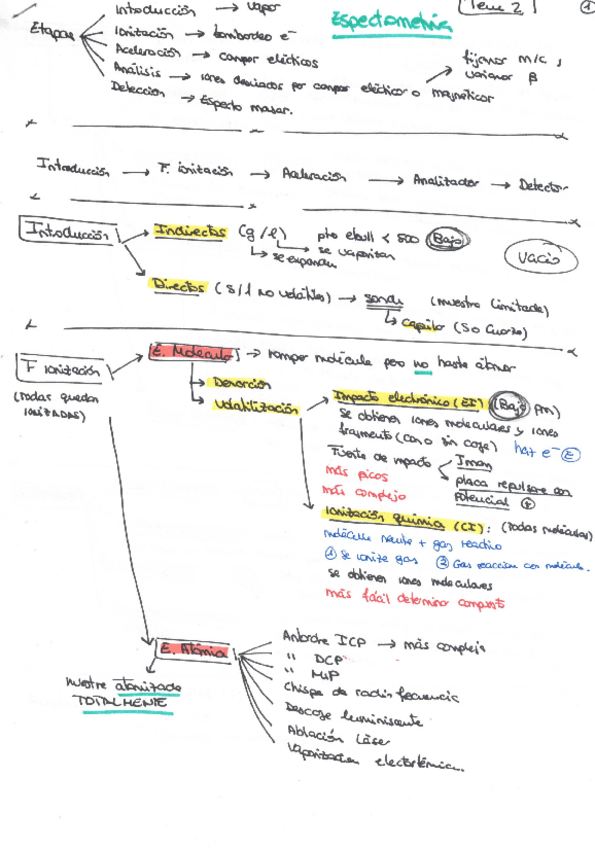 Tema 2
1
Espectometria
Etapas
Introducción → vapor
Ionización → bombardeo e⁻
Aceleración → campos eléctricos
Análisis → iones desviados por campos eléctricos o magnéticos
fijamos m/c,
variamos β
Detección → Espectro masas.
Introducción → F. ionización → Aceleración → Analizador → Detector
Introducción
Indirectos (g/l) pto ebull < 500 Bajo
↳ se vaporizan
↳ se expanden
vacío
Directos (S/l no volátiles) → sonda (muestra limitada)
↳ capilar (50 cuarzo)
F ionización
(todas quedan
IONIZADAS)
E. Molecular → romper molécula pero no hasta átomos
→ Desorción
→ Volatilización
Impacto electrónico (EI) (Bajo PM)
Se obtienen iones moleculares y iones
fragmento (con o sin carga) haz e⁻
Fuente de impacto
Iman
placa repulsora con
potencial +
más picos
más complejo
Ionización química (CI): (todas moléculas)
molécula neutra + gas reactivo
① Se ioniza gas ② Gas reacciona con molécula.
se obtienen iones moleculares
más fácil determinar compuesto
E. Atómica
muestra atomizada
TOTALMENTE
Antorcha ICP → más compleja
" DCP
" MIP
Chispa de radio frecuencia
Descarga luminiscente
Ablación láser
Vaporización electrotérmica.